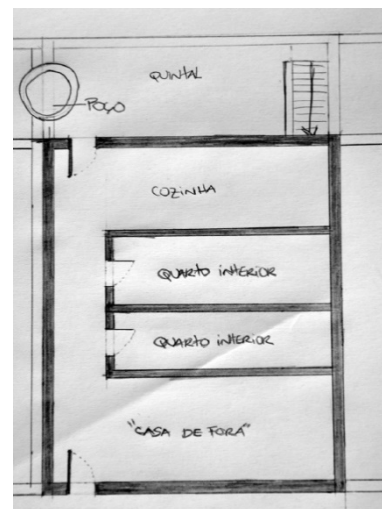 QUINTAL
POÇO
COZINHA
QUARTO INTERIOR
QUARTO INTERIOR
"CASA DE FORA"